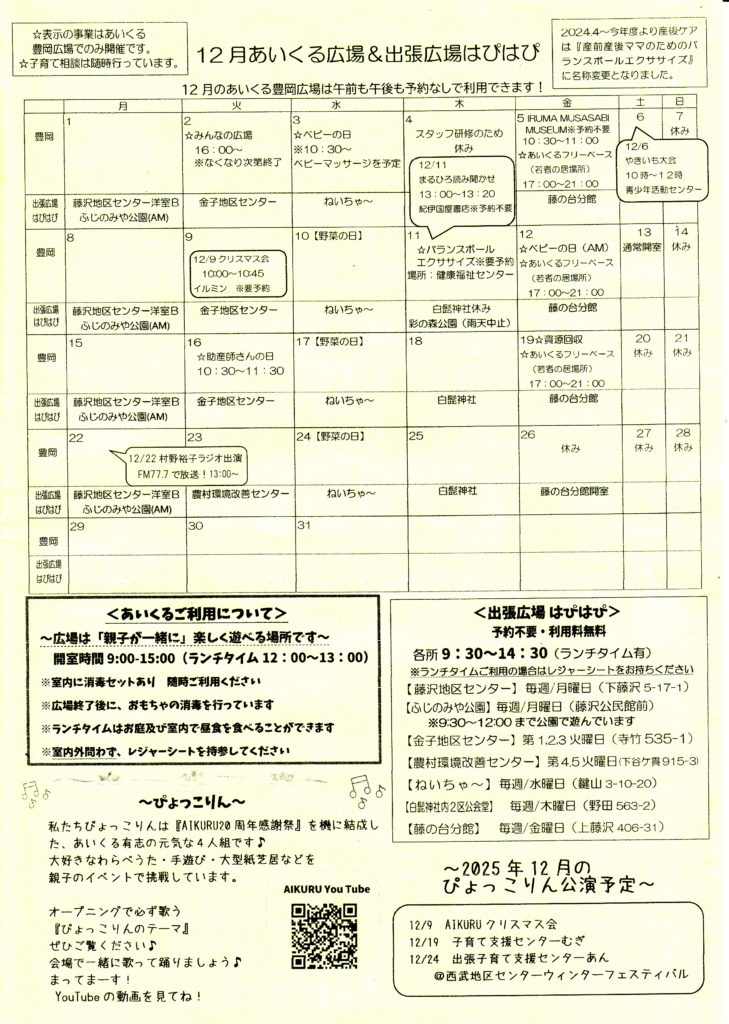 ☆表示の事業はあいくる
豊岡広場でのみ開催です。
☆子育て相談は随時行っています。
12月あいくる広場＆出張広場はぴはぴ
2024.4～今年度より産後ケア
は『産前産後ママのためのバ
ランスボールエクササイズ』
に名称変更となりました。
12月のあいくる豊岡広場は午前も午後も予約なしで利用できます！
月 火 水 木 金 土 日
豊岡
1
2
☆みんなの広場
16：00～
※なくなり次第終了
3
☆ベビーの日
※10：30～
ベビーマッサージを予定
4
スタッフ研修のため
休み
5 IRUMA MUSASABI
MUSEUM※予約不要
10：30～11：00
☆あいくるフリーベース
（若者の居場所）
17：00～21：00
6
7
休み
12/11
まるひろ読み聞かせ
13：00～13：20
紀伊国屋書店※予約不要
12/6
やきいも大会
10時～12時
青少年活動センター
出張広場
はぴはぴ
藤沢地区センター洋室B
ふじのみや公園(AM)
金子地区センター
ねいちゃ～
藤の台分館
豊岡
8
9
12/9 クリスマス会
10:00～10:45
イルミン ※要予約
10【野菜の日】
11
☆バランスボール
エクササイズ※要予約
場所：健康福祉センター
12
☆ベビーの日（AM）
☆あいくるフリーベース
（若者の居場所）
17：00～21：00
13
通常開室
14
休み
出張広場
はぴはぴ
藤沢地区センター洋室B
ふじのみや公園(AM)
金子地区センター
ねいちゃ～
白髭神社休み
彩の森公園（雨天中止）
藤の台分館
豊岡
15
16
☆助産師さんの日
10：30～11：30
17【野菜の日】
18
19☆資源回収
☆あいくるフリーベース
（若者の居場所）
17：00～21：00
20
休み
21
休み
出張広場
はぴはぴ
藤沢地区センター洋室B
ふじのみや公園(AM)
金子地区センター
ねいちゃ～
白髭神社
藤の台分館
豊岡
22
23
12/22 村野裕子ラジオ出演
FM77.7で放送！13:00～
24【野菜の日】
25
26
休み
27
休み
28
休み
出張広場
はぴはぴ
藤沢地区センター洋室B
ふじのみや公園(AM)
農村環境改善センター
ねいちゃ～
白髭神社
藤の台分館開室
豊岡
29
30
31
出張広場
はぴはぴ
＜あいくるご利用について＞
～広場は「親子が一緒に」楽しく遊べる場所です～
開室時間 9:00-15:00（ランチタイム 12：00～13：00）
※室内に消毒セットあり 随時ご利用ください
※広場終了後に、おもちゃの消毒を行っています
※ランチタイムはお庭及び室内で昼食を食べることができます
※室内外問わず、レジャーシートを持参してください
＜出張広場 はぴはぴ＞
予約不要・利用料無料
各所 9：30～14：30（ランチタイム有）
※ランチタイムご利用の場合はレジャーシートをお持ちください
【藤沢地区センター】毎週/月曜日（下藤沢 5-17-1）
【ふじのみや公園】毎週/月曜日（藤沢公民館前）
※9:30～12:00 まで公園で遊んでいます
【金子地区センター】第 1,2,3 火曜日（寺竹 535-1）
【農村環境改善センター】第 4.5 火曜日(下谷ケ貫 915-3)
【ねいちゃ～】毎週/水曜日（鍵山 3-10-20）
【白髭神社内2区公会堂】 毎週/木曜日（野田 563-2）
【藤の台分館】 毎週/金曜日（上藤沢 406-31）
～ぴょっこりん～
私たちぴょっこりんは『AIKURU20周年感謝祭』を機に結成し
た、あいくる有志の元気な４人組です♪
大好きなわらべうた・手遊び・大型紙芝居などを
親子のイベントで挑戦しています。
オープニングで必ず歌う
『ぴょっこりんのテーマ』
ぜひご覧ください♪
会場で一緒に歌って踊りましょう♪
まってまーす！
YouTubeの動画を見てね！
AIKURU You Tube
～2025年12月の
ぴょっこりん公演予定～
12/9 AIKURUクリスマス会
12/19 子育て支援センターむぎ
12/24 出張子育て支援センターあん
＠西武地区センターウィンターフェスティバル